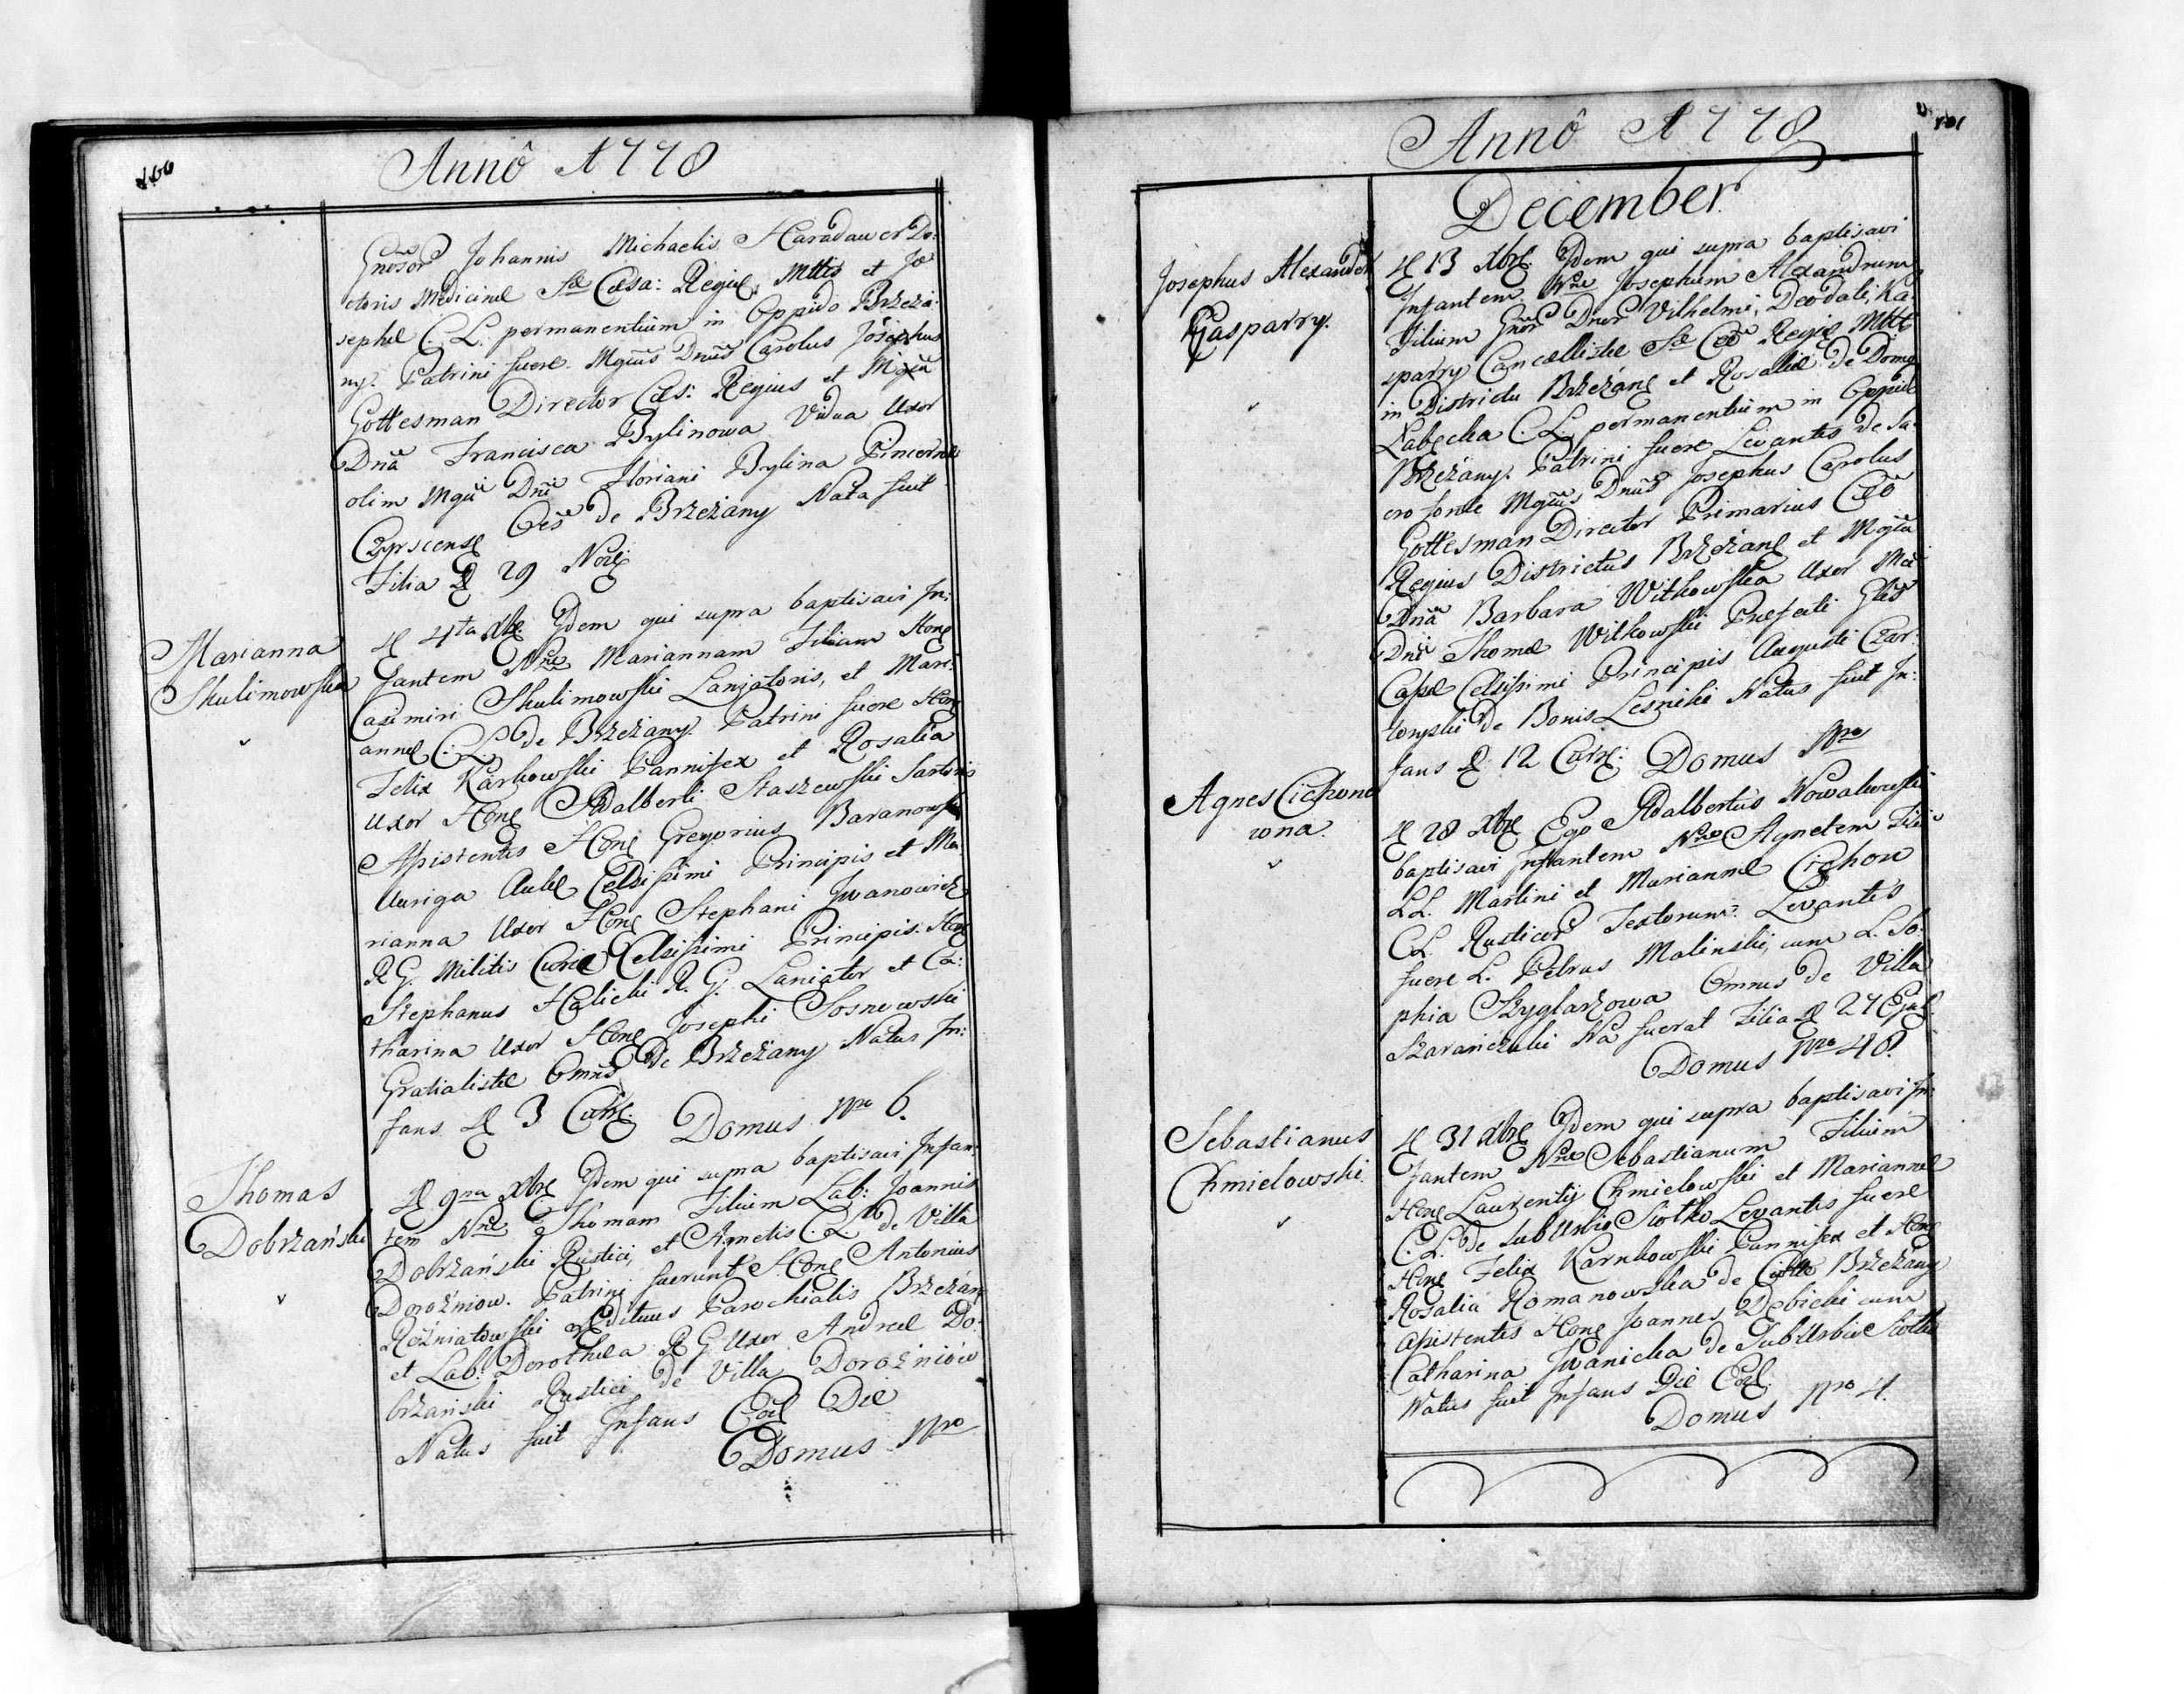 100
Annô 1778
Gnosor Johannis Michaelis Haradauer Do:
ctoris Medicinæ Sæ Cæsa: Regiæ Mttis et Jo
sephæ C. L. permanentium in Oppido Brzeża:
ny. Patrini fuere Mgcus Dnus Carolus Josephus
Gottesman Director Cæs: Regius et Mgca
Dna Francisca Bylinowa Vidua Uxor
olim Mgci Dni Floriani Bylina Pincernæ
Oes de Brzeżany Nata fuit
Filia D 29 Nbris
Marianna
Skulimowska
D 4ta Xbr. Ydem qui supra baptisavi In:
fantem Nne Mariannam Filiam Hone
Casimiri Skulimowski Laniatoris, et Mari:
annæ C. L. de Brzeżany. Patrini fuere Hone
Felix Karkowski Pannifex et Rosalia
Uxor Hone Adalberti Staszewski Sartoris
Assistentes Hone Gregorius Baranowski
Auriga Aulæ Celsissimi Principis et Ma:
rianna Uxor Hone Stephani Jwanowicz
R G. Militis Curiæ Celsissimi Principis. Hone
Stephanus Halicki R. G. Laniator et Ca:
tharina Uxor Hone Josephi Sosnowski
Gratialistæ Omnes de Brzeżany Natus In:
fans D 3 Curre. Domus Nro 6.
Thomas
Dobrzański
D 9na Xbre Ydem qui supra baptisavi Infan:
tem Nne Thomam Filium Lab: Joannis
Dobrzański Rustici, et Agnetis C. L. de Villa
Dorożniow. Patrini fuerunt Hone Antonius
Rożniatowski Æditus Parochialis Brzeżan
et Lab: Dorothæa R G Uxor Andreæ Do:
brzański Rustici de Villa Dorożniow
Natus fuit Infans Eod Die
Domus Nro
101
Annô 1778
December
Josephus Alexander
Gasparry.
D 13 Xbre. Ydem qui supra baptisavi
Infantem Nne Josephum Alexandrum
Filium Gnor Dnor Vilhelmi, Deodati, Ka:
sparry Cancellistæ Sæ Ceo Regiæ Mtts
in Districtu Brzeżane et Rosaliæ de Domo
Łabęcka C. L. permanentium in Oppid
Brzeżany. Patrini fuere Levantes de Sa:
cro fonte Mgcus Dnus Josephus Carolus
Gottesman Director Primarius Ceo
Regius Districtus Brzeżane et Mgca
Dna Barbara Witkowska Uxor Mci
Dni Thomæ Witkowski Præfecti Glis
Capsæ Celsissimi Principis Augusti Czar:
toryski de Bonis Lesniki Natus fuit In:
fans D 12 Curre: Domus Nro
Agnes Cichono
wna.
D 28 Xbre Ego Adalbertus Nowakowski
baptisavi Infantem Nne Agnetem Filia
LL. Martini et Mariannæ Cichon
CL Rusticor Textorum. Levantes
fuere L. Petrus Malinski, cum L. So:
phia Szyglarzowa Omnes de Villa
Szaranczuki Na fuerat Filia D 27 Ejusd.
Domus Nro 48.
Sebastianus
Chmielowski.
D 31 Xbre Ydem qui supra baptisavi In:
fantem Nne Sebastianum Filium
Hone Laurentij Chmielowski et Mariannæ
C. L. de SubUrbio Siołko Levantes fuere
Hone Felix Karnkowski Pannifex et Hone
Rosalia Romanowska de Civitte Brzeżany
Assistentes Hone Joannes Dębicki cum
Catharina Jwanicka de SubUrbio Siołko
Natus fuit Infans Die Eod.
Domus Nro 4.